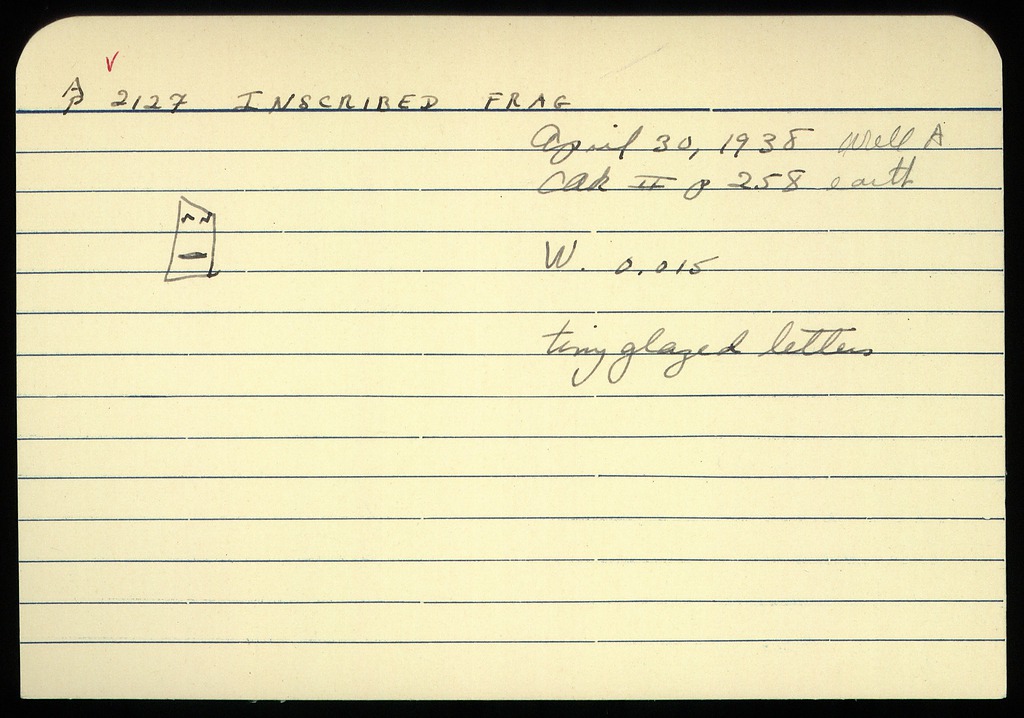 AP 2127 INSCRIBED FRAG
April 30, 1938 Well A
CAK II p 258 earth
W. 0.015
tiny glazed letters